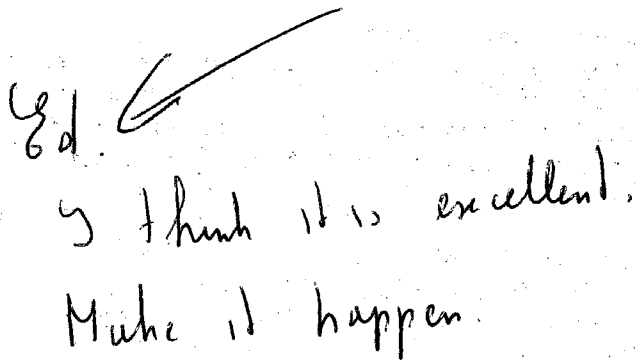 Ed.
I think it is excellent.
Make it happen.